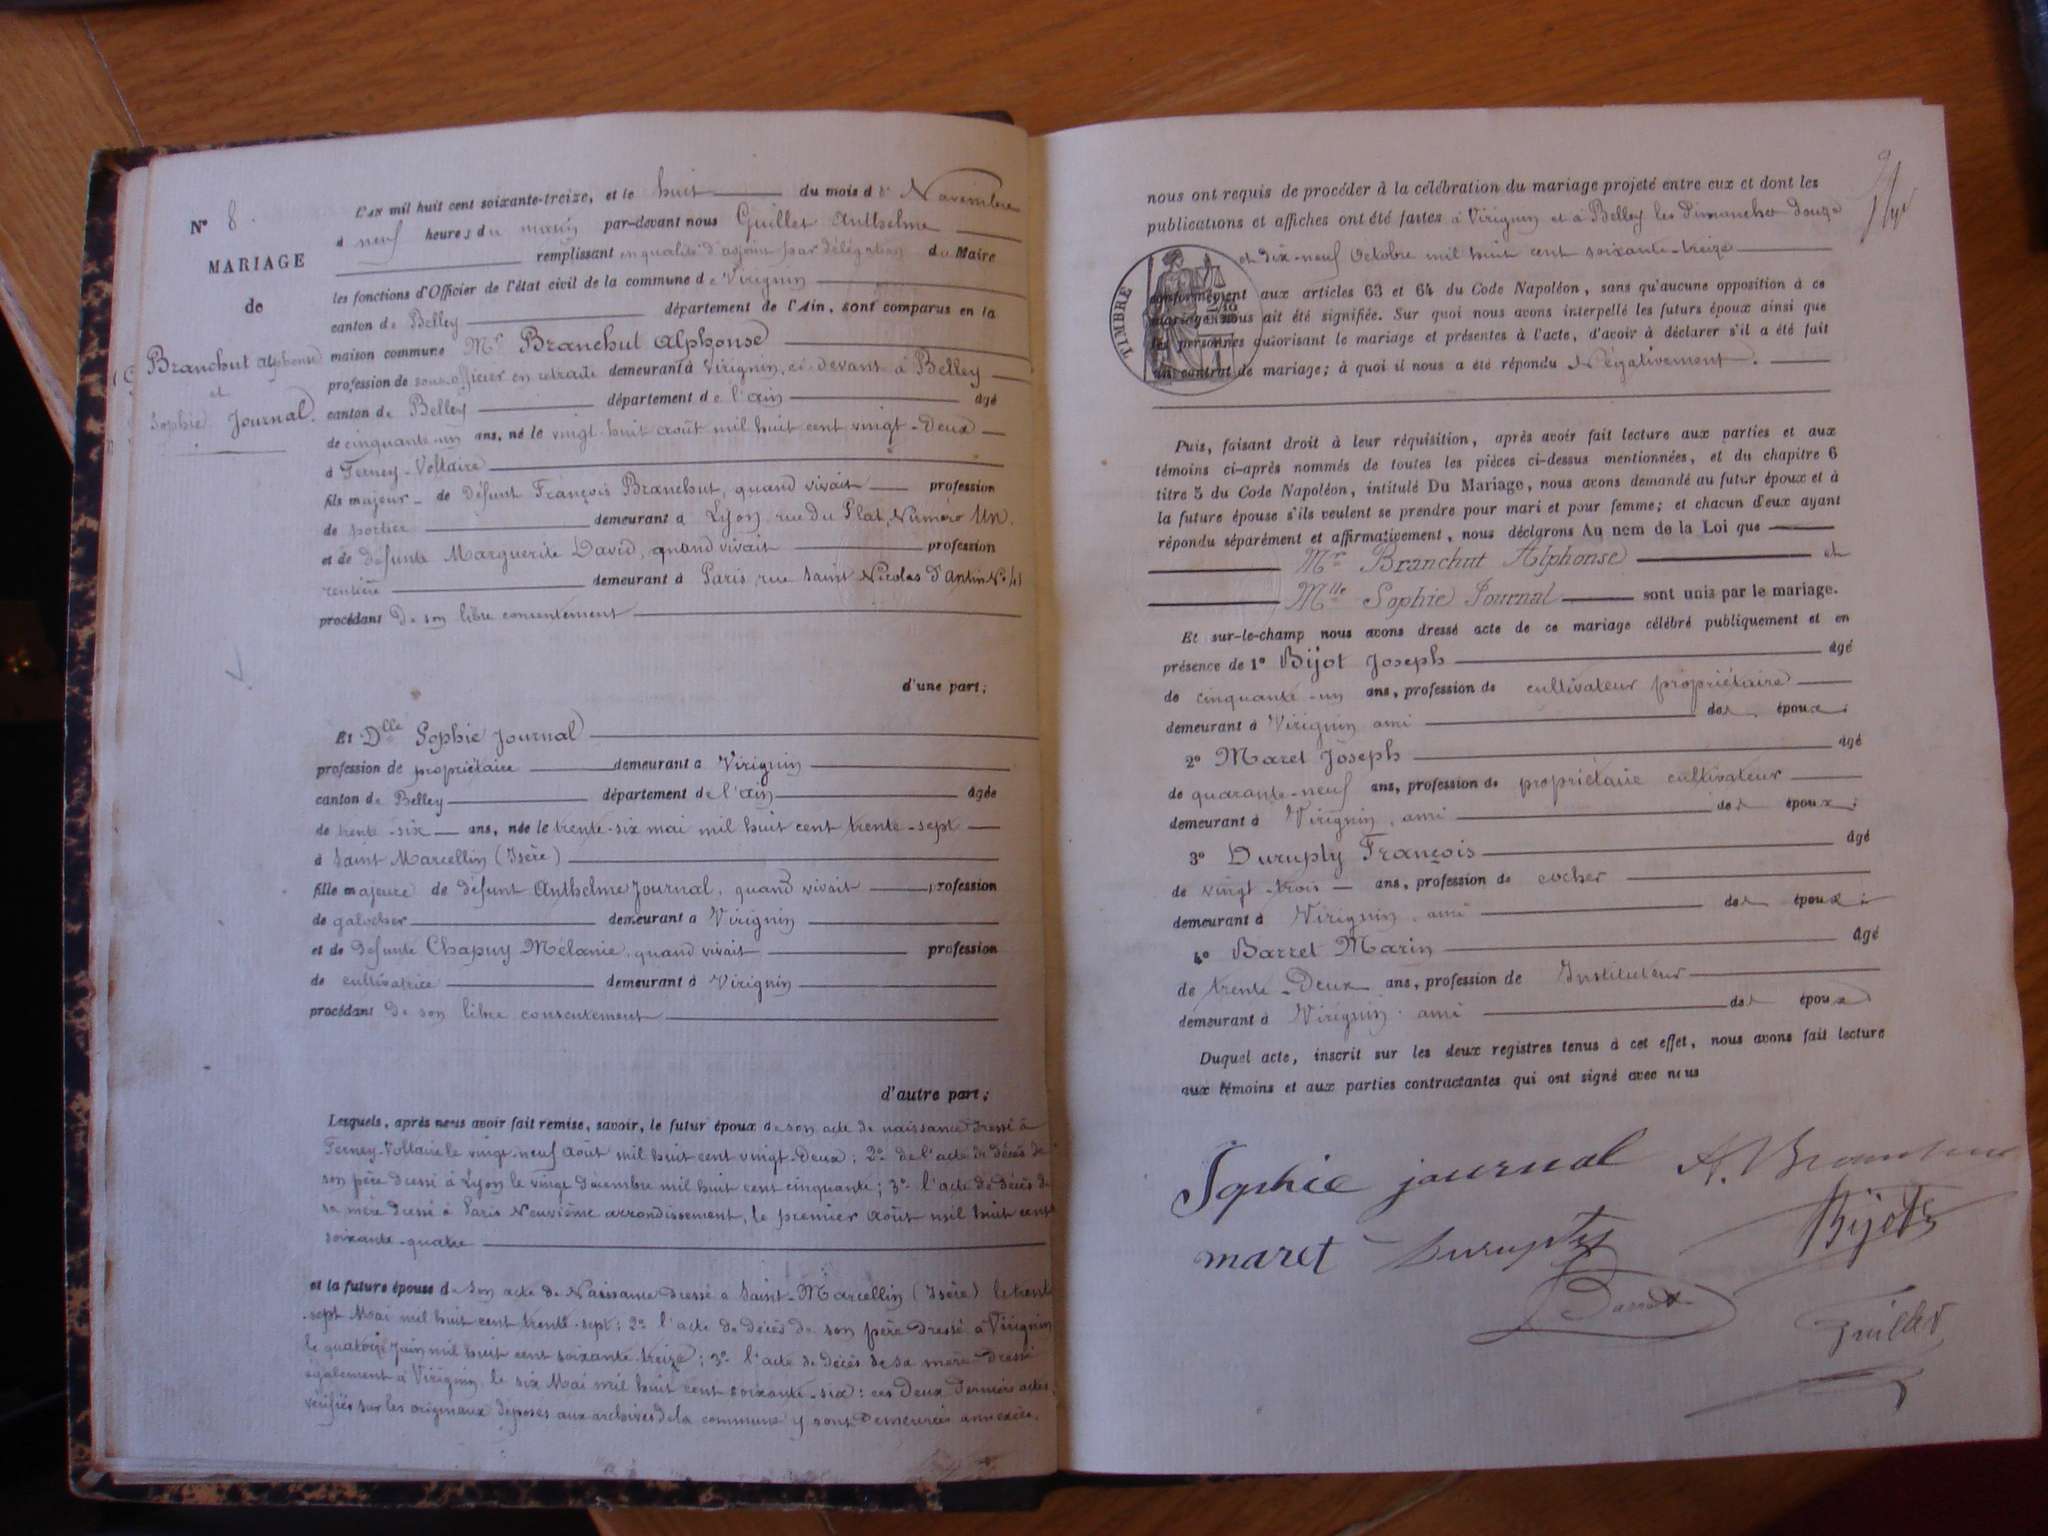 N° 8.
MARIAGE
de
Branchut Alphonse
et
Sophie Journal.
L'AN mil huit cent soixante-treize, et le huit du mois de Novembre
à neuf heures du matin par-devant nous Guillet Anthelme
remplissant en qualité d'adjoint par délégation du Maire
les fonctions d'Officier de l'état civil de la commune de Virignin
canton de Belley département de l'Ain, sont comparus en la
maison commune Mr Branchut Alphonse
profession de sous officier en retraite demeurant à Virignin, ci-devant à Belley
canton de Belley département de l'ain âgé
de cinquante-un ans, né le vingt huit août mil huit cent vingt-deux
à Ferney-Voltaire
fils majeur de défunt François Branchut, quand vivait profession
de portier demeurant à Lyon rue du Plat, Numéro Un.
et de défunte Marguerite David, quand vivait profession
rentière demeurant à Paris rue Saint Nicolas d'Antin No 41
procédant de son libre consentement
d'une part;
Et Dlle Sophie Journal
profession de propriétaire demeurant à Virignin
canton de Belley département de l'ain âgée
de trente-six ans, née le trente-six mai mil huit cent trente-sept
à Saint Marcellin (Isère)
fille majeure de défunt Anthelme Journal, quand vivait profession
de galocher demeurant à Virignin
et de défunte Chapuy Mélanie, quand vivait profession
de cultivatrice demeurant à Virignin
procédant de son libre consentement
d'autre part;
Lesquels, après nous avoir fait remise, savoir, le futur époux de son acte de naissance dressé à
Ferney-Voltaire le vingt-neuf août mil huit cent vingt-deux; 2° de l'acte de décès de
son père dressé à Lyon le vingt décembre mil huit cent cinquante; 3° l'acte de décès de
sa mère dressé à Paris Neuvième arrondissement, le premier août mil huit cent
soixante-quatre
et la future épouse de son acte de Naissance dressé à Saint-Marcellin (Isère) le trente
-sept Mai mil huit cent trente-sept; 2° l'acte de décès de son père dressé à Virignin
le quatorze juin mil huit cent soixante-treize; 3° l'acte de décès de sa mère dressé
également à Virignin le six Mai mil huit cent soixante-six: ces deux derniers actes,
vérifiés sur les originaux déposés aux archives de la commune y sont demeurés annexés.
nous ont requis de procéder à la célébration du mariage projeté entre eux et dont les
publications et affiches ont été faites à Virignin et à Belley les Dimanches douze
et dix-neuf Octobre mil huit cent soixante-treize
TIMBRE
conformément aux articles 63 et 64 du Code Napoléon, sans qu'aucune opposition à ce
mariage nous ait été signifiée. Sur quoi nous avons interpellé les futurs époux ainsi que
les personnes autorisant le mariage et présentes à l'acte, d'avoir à déclarer s'il a été fait
un contrat de mariage; à quoi il nous a été répondu Négativement.
Puis, faisant droit à leur réquisition, après avoir fait lecture aux parties et aux
témoins ci-après nommés de toutes les pièces ci-dessus mentionnées, et du chapitre 6
titre 5 du Code Napoléon, intitulé Du Mariage, nous avons demandé au futur époux et à
la future épouse s'ils veulent se prendre pour mari et pour femme; et chacun d'eux ayant
répondu séparément et affirmativement, nous déclarons Au nem de la Loi que
Mr Branchut Alphonse et
Mlle Sophie Journal sont unis par le mariage.
Et sur-le-champ nous avons dressé acte de ce mariage célébré publiquement et en
présence de 1° Bijot Joseph âgé
de cinquante-un ans, profession de cultivateur propriétaire
demeurant à Virignin ami des époux;
2° Maret Joseph âgé
de quarante-neuf ans, profession de propriétaire cultivateur
demeurant à Virignin, ami des époux;
3° Durupty François âgé
de vingt-trois ans, profession de cocher
demeurant à Virignin, ami des époux;
4° Barret Marin âgé
de trente-Deux ans, profession de Instituteur
demeurant à Virignin. ami des époux
Duquel acte, inscrit sur les deux registres tenus à cet effet, nous avons fait lecture
aux témoins et aux parties contractantes qui ont signé avec nous
Sophie journal A. Branchut
maret Durupty Bijot
Barret
Guillet